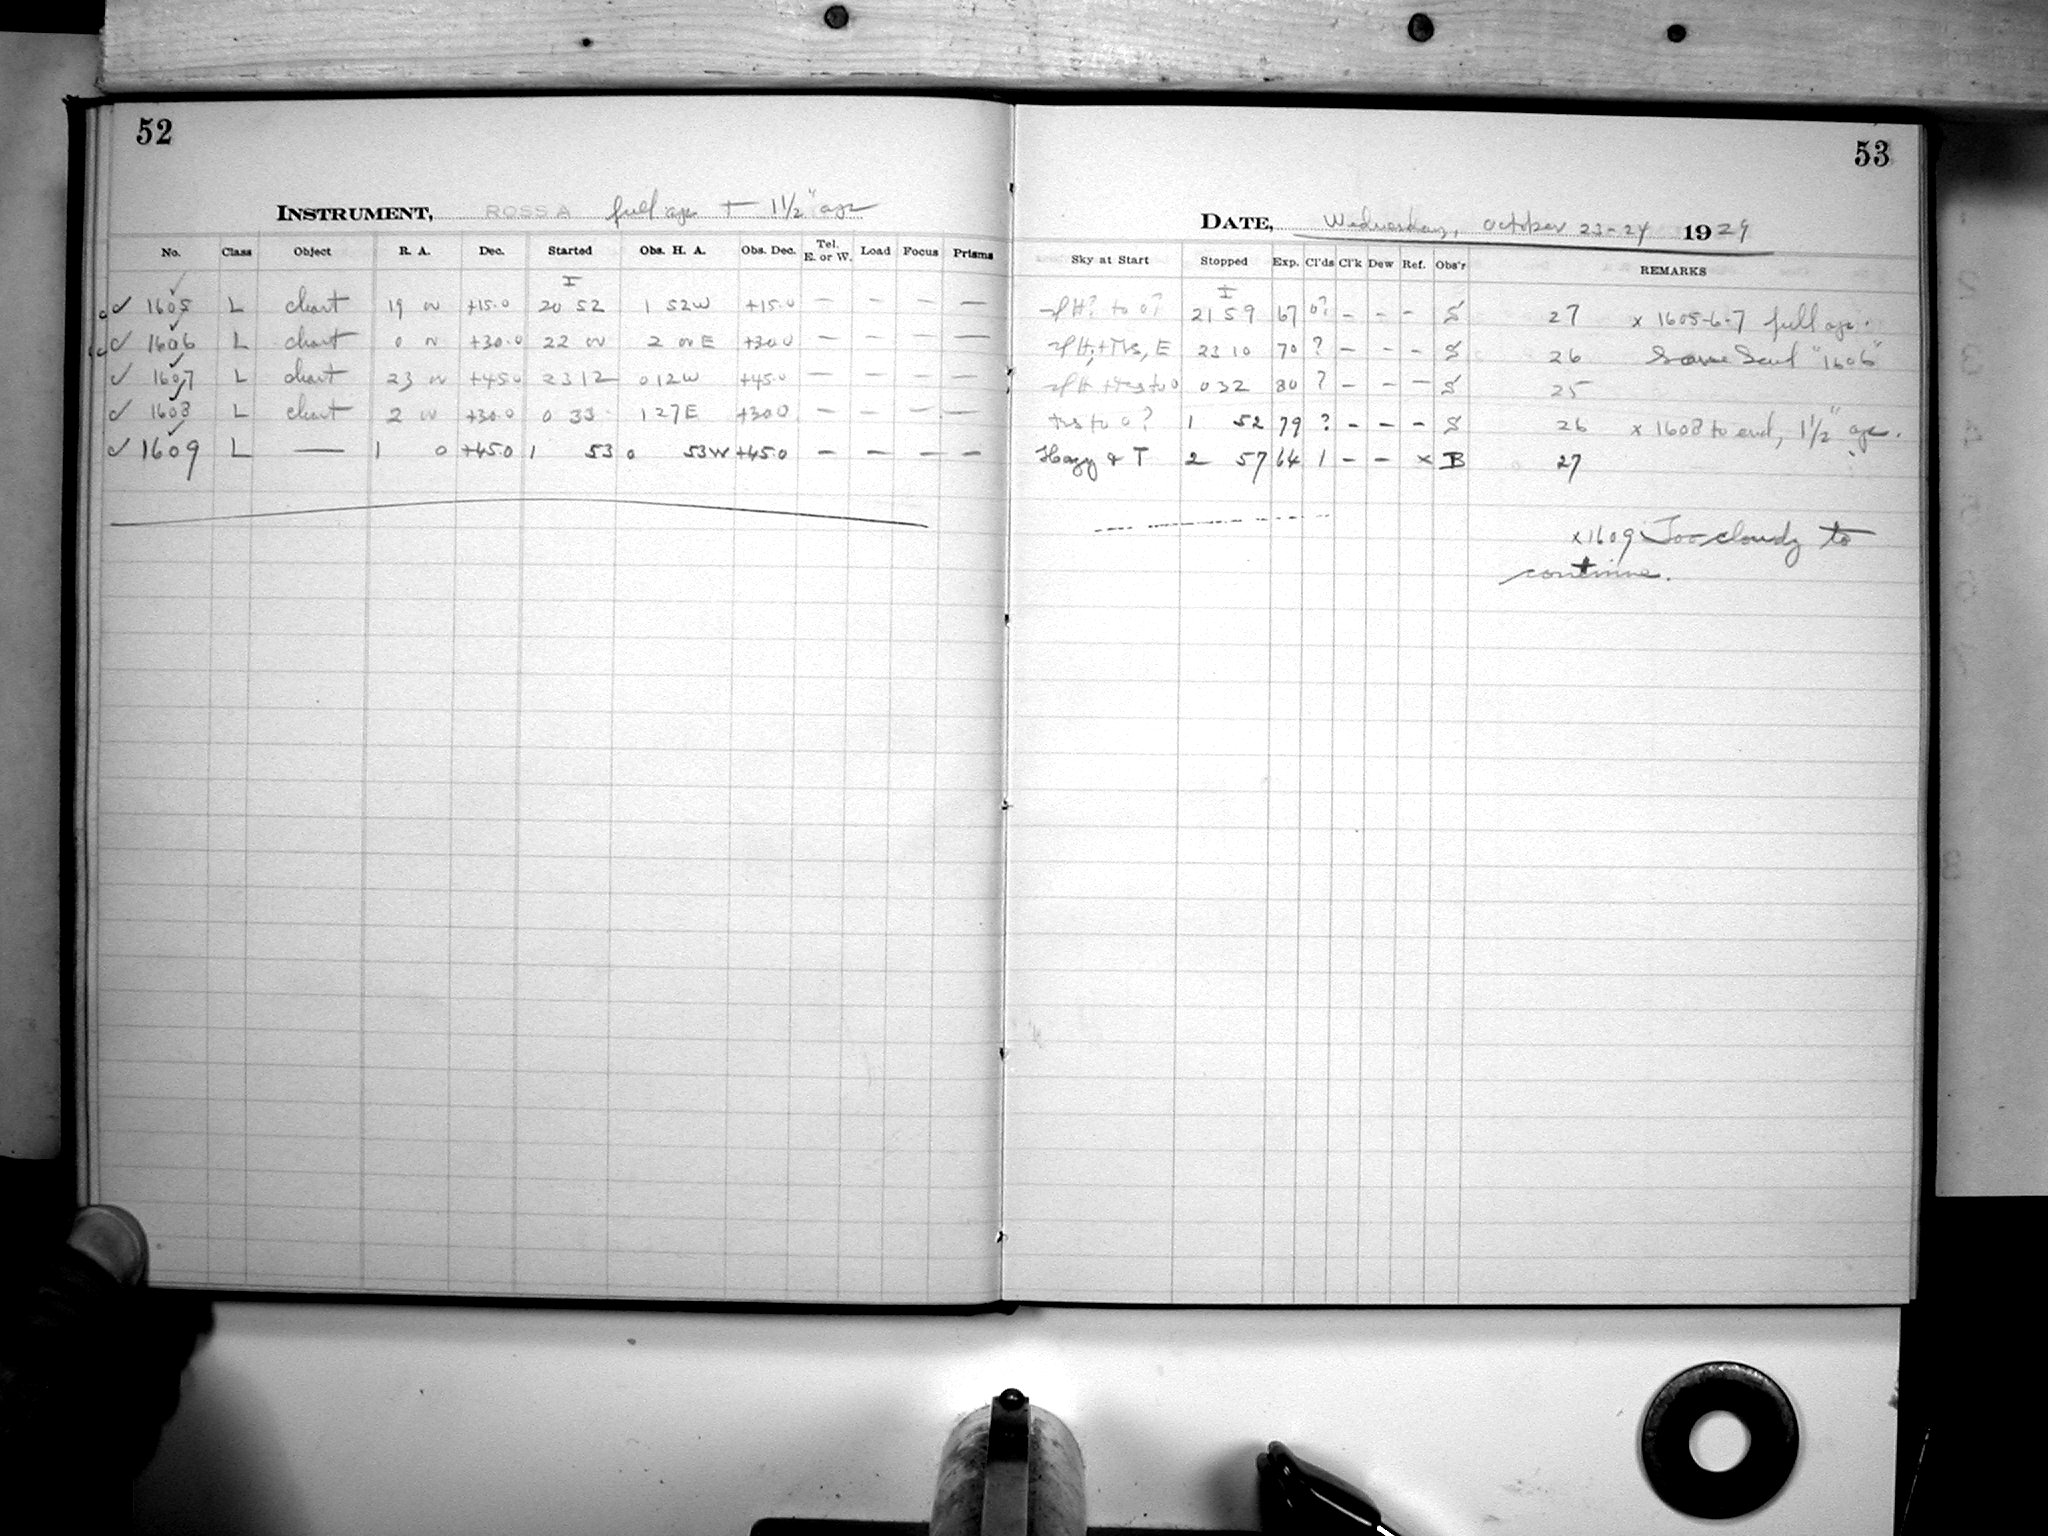 52
INSTRUMENT, ROSS A full ap + 1 1/2" ap
No. Class Object R. A. Dec. Started Obs. H. A. Obs. Dec. Tel. E. or W. Load Focus Prisms
I
✓ 1605 L chart 19 +15.0 20 52 1 52W +15.0 — — — —
✓ 1606 L chart 0 +30.0 22 2 E +30.0 — — — —
✓ 1607 L chart 23 +45.0 23 12 0 12W +45.0 — — — —
✓ 1608 L chart 2 +30.0 0 33 1 27E +30.0 — — — —
✓ 1609 L — 1 0 +45.0 1 53 0 53W +45.0 — — — —
53
DATE, Wednesday, October 23-24 1929
Sky at Start Stopped Exp. Cl'ds Cl'k Dew Ref. Obs'r REMARKS
I
H? to 0? 21 59 67 0? - - - S 27 x 1605-6-7 full ap.
E 23 10 70 ? - - - S 26 Same "1606"
0 32 80 ? - - - S 25
to 0? 1 52 79 ? - - - S 26 x 1608 to end, 1 1/2" ap.
Hazy & T 2 57 64 1 - - x B 27
x1609 Too cloudy to
continue.